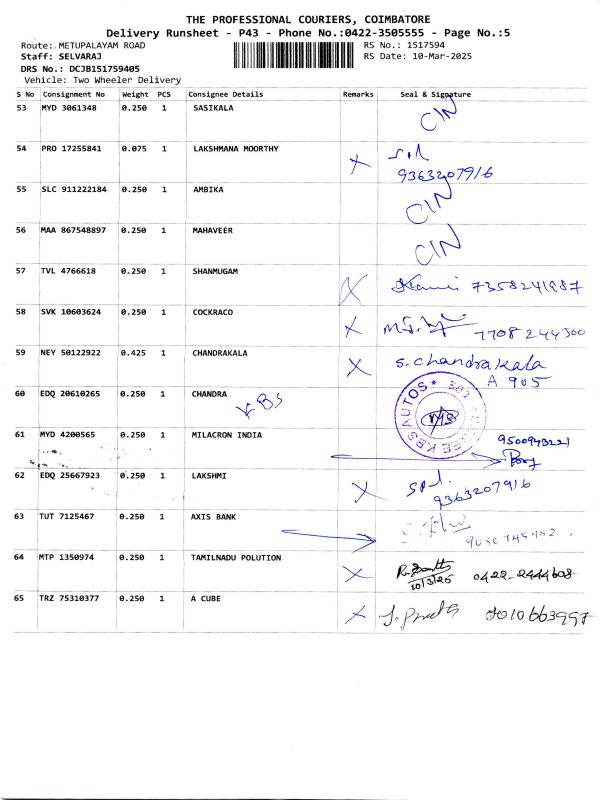 THE PROFESSIONAL COURIERS, COIMBATORE
Delivery Runsheet - P43 - Phone No.:0422-3505555 - Page No.:5
Route: METUPALAYAM ROAD RS No.: 1517594
Staff: SELVARAJ RS Date: 10-Mar-2025
DRS No.: DCJB151759405
Vehicle: Two Wheeler Delivery
S No Consignment No Weight PCS Consignee Details Remarks Seal & Signature
53 MYD 3061348 0.250 1 SASIKALA CIN
54 PRO 17255841 0.075 1 LAKSHMANA MOORTHY X
9363207916
55 SLC 911222184 0.250 1 AMBIKA CIN
56 MAA 867548897 0.250 1 MAHAVEER CIN
57 TVL 4766618 0.250 1 SHANMUGAM X 7358241987
58 SVK 10603624 0.250 1 COCKRACO X 7708244500
59 NEY 50122922 0.425 1 CHANDRAKALA X S. Chandrakala
A 905
60 EDQ 20610265 0.250 1 CHANDRA KBS AUTOS
61 MYD 4200565 0.250 1 MILACRON INDIA
62 EDQ 25667923 0.250 1 LAKSHMI X
9363207916
63 TUT 7125467 0.250 1 AXIS BANK
64 MTP 1350974 0.250 1 TAMILNADU POLUTION X 0422-2444608
10/3/25
65 TRZ 75310377 0.250 1 A CUBE X